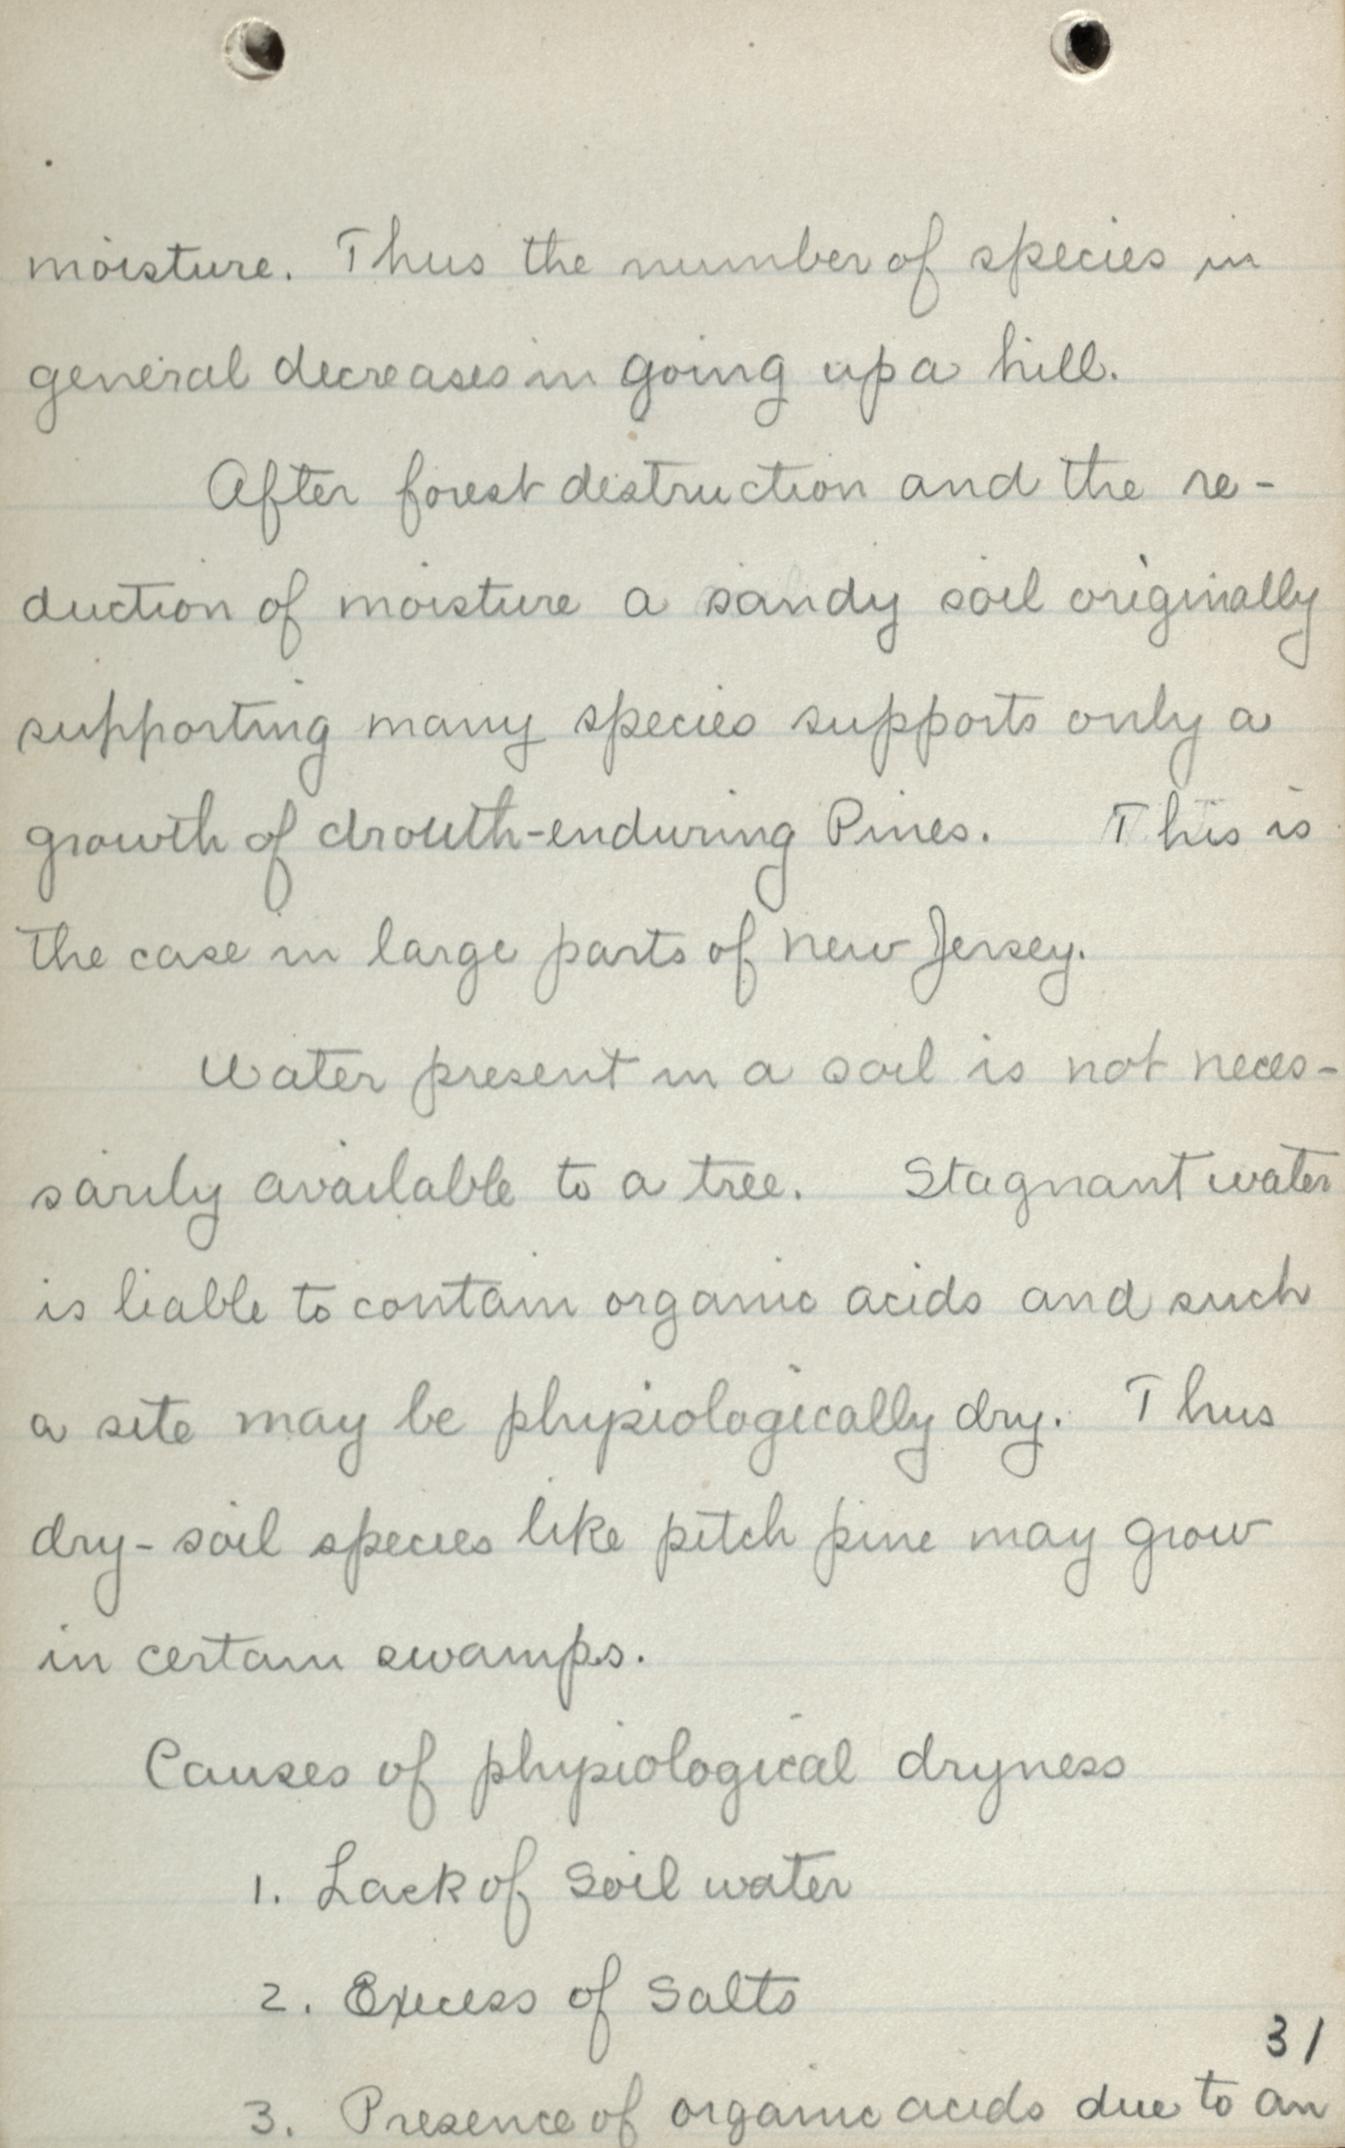 moisture. Thus the number of species in
general decreases in going up a hill.
After forest destruction and the re-
duction of moisture a sandy soil originally
supporting many species supports only a
growth of drouth-enduring Pines. This is
the case in large parts of New Jersey.
Water present in a soil is not neces-
sarily available to a tree. Stagnant water
is liable to contain organic acids and such
a site may be physiologically dry. Thus
dry-soil species like pitch pine may grow
in certain swamps.
Causes of physiological dryness
1. Lack of Soil water
2. Excess of Salts
31
3. Presence of organic acids due to an